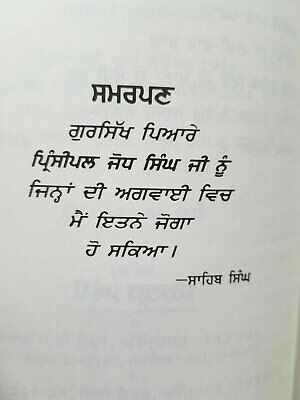 ਸਮਰਪਣ
ਗੁਰਸਿੱਖ ਪਿਆਰੇ
ਪ੍ਰਿੰਸੀਪਲ ਜੋਧ ਸਿੰਘ ਜੀ ਨੂੰ
ਜਿਨ੍ਹਾਂ ਦੀ ਅਗਵਾਈ ਵਿਚ
ਮੈਂ ਇਤਨੇ ਜੋਗਾ
ਹੋ ਸਕਿਆ।
—ਸਾਹਿਬ ਸਿੰਘ